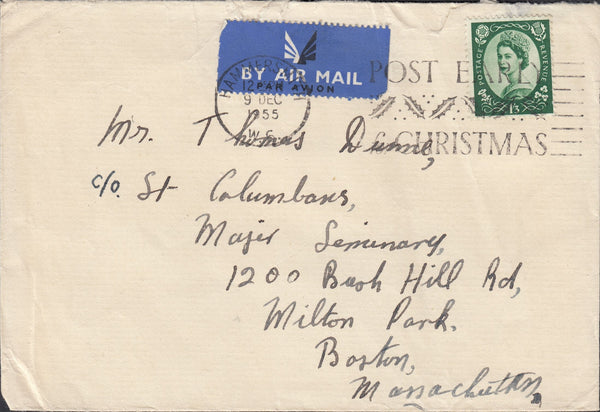 BY AIR MAIL
PAR AVION
HAMMERSMITH
12
9 DEC
1955
W.6.
POST EARLY
CHRISTMAS
POSTAGE
REVENUE
1/3
Mr. Thomas Dunne,
c/o. St Columbans,
Major Seminary,
1200 Bush Hill Rd,
Milton Park.
Boston,
Massachutts,